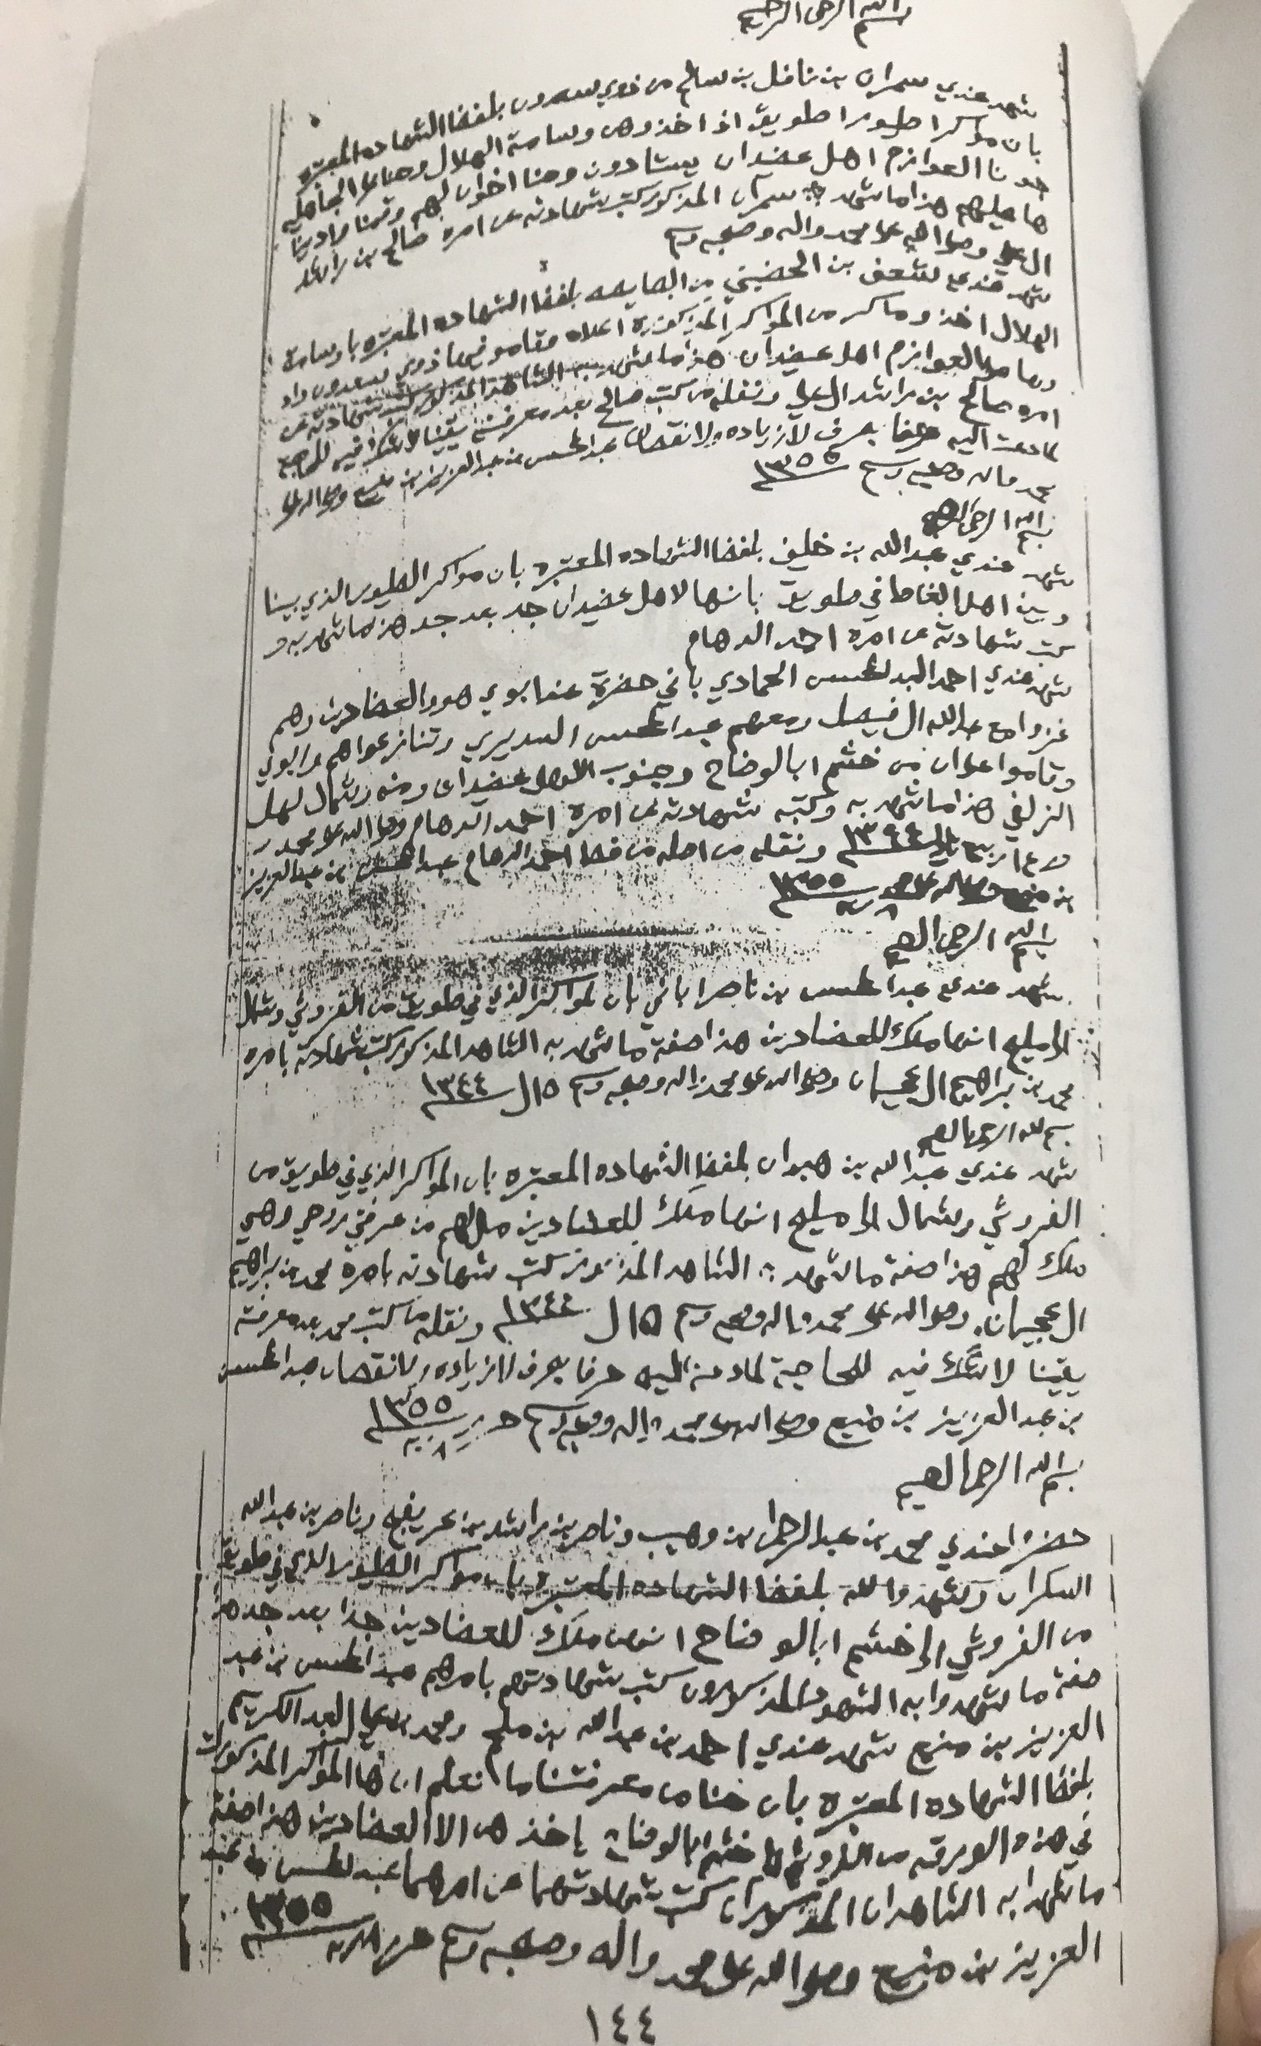 بسم الله الرحمن الرحيم
شهد عندي سمران بن نافل بن سالم من ذوي سعدون بلفظ الشهاده المعتبره
بان مواكر اطيور اطويق اذا خذوهن وسامة الهلال وحنا مع
العوازم اهل عضيدان وحنا اخوان لهم
ما عليهم هذا ما شهد به سمران المذكور كتب شهادته عن امره صالح بن راشد
ال علي وصلى الله على محمد واله وصحبه وسلم
شهد عندي بن الحضيني من بلفظ الشهاده المعتبره بان وسامة
الهلال اخذوا مواكر من المواكر المذكورة اعلاه
العوازم اهل عضيدان هذا ما شهد به الشاهد المذكور كتب شهادته عن
امره صالح بن راشد ال علي ونقله من كتب صالح بعد معرفته يقينا لا شك فيه للحاجة
لما دعت اليه حرفا بحرف لا زياده ولا نقصان عبد المحسن بن عبد العزيز بن منيع وصلى الله على
محمد واله وصحبه وسلم ١٣٥٥
بسم الله الرحمن الرحيم
شهد عندي عبدالله بن خليف بلفظ الشهاده المعتبره بان مواكر الطيور الذي بيننا
وبين اهل الغاط في طويق بانها لاهل عضيدان جد بعد جد هذا ما شهد به و
كتب شهادته عن امره احمد الدهام
شهد عندي احمد العبد المحسن الحمادي باني حضرة عند ابوي هو والعضادين وهم
غزوا مع عبدالله ال فيصل ومعهم عبد المحسن السديري وتنازعوا هم وابوي
وقاموا على ان من خشم ابالوضاح وجنوب لاهل عضيدان ومنه وشمال لهل
الزلفي هذا ما شهد به وكتبه شهادته عن امره احمد الدهام وصلى الله على محمد
ونقله من اصله من خط احمد الدهام عبد المحسن بن عبد العزيز
بن منيع وصلى الله على محمد ١٣٥٥
بسم الله الرحمن الرحيم
شهد عندي عبد المحسن بن ناصر اباني بان المواكر الذي في طويق من الفروثي وشمال
الى مليح انها ملك للعضادين هذا صفة ما شهد به الشاهد المذكور كتب شهادته بامره
محمد بن براهيم ال عجيمان وصلى الله على محمد واله وصحبه وسلم ١٥ ل ١٣٤٤
بسم الله الرحمن الرحيم
شهد عندي عبدالله بن هبدان بلفظ الشهاده المعتبره بان المواكر الذي في طويق من
الفروثي وشمال الى مليح انها ملك للعضادين مالهم من عرفتي روحي وهي
ملك لهم هذا صفة ما شهد به الشاهد المذكور كتب شهادته بامره محمد بن براهيم
ال عجيمان وصلى الله على محمد واله وصحبه وسلم ١٥ ل ١٣٤٤ ونقله من كتب محمد بعد معرفته
يقينا لا شك فيه للحاجة لما دعت اليه حرفا بحرف لا زياده ولا نقصان عبد المحسن
بن عبد العزيز بن منيع وصلى الله على محمد واله وصحبه وسلم حرر ١٣٥٥
بسم الله الرحمن الرحيم
حضروا عندي محمد بن عبد الرحمن بن وهيب وناصر بن راشد بن عريفج وناصر بن عبدالله
السكران وشهدوا لله بلفظ الشهاده المعتبره بان مواكر الطيور الذي في طويق
من الفروثي الى خشم ابالوضاح انهن ملك للعضادين جدا بعد جد هذا
صفة ما شهدوا به الشهود المذكورون كتب شهادتهم بامرهم عبد المحسن بن عبد
العزيز بن منيع شهد عندي احمد بن عبدالله بن ملحم ومحمد بن علي العبد الكريم
بلفظ الشهاده المعتبره بان حنا من معرفتنا ما نعلم ان هالمواكر المذكورات
في هذه الورقه من الفروثي الى خشم ابالوضاح ياخذهن الا العضادين هذا صفة
ما شهدا به الشاهدان المذكوران كتب شهادتهما عن امرهما عبد المحسن بن عبد
العزيز بن منيع وصلى الله على محمد واله وصحبه وسلم حرر ١٣٥٥
١٤٤